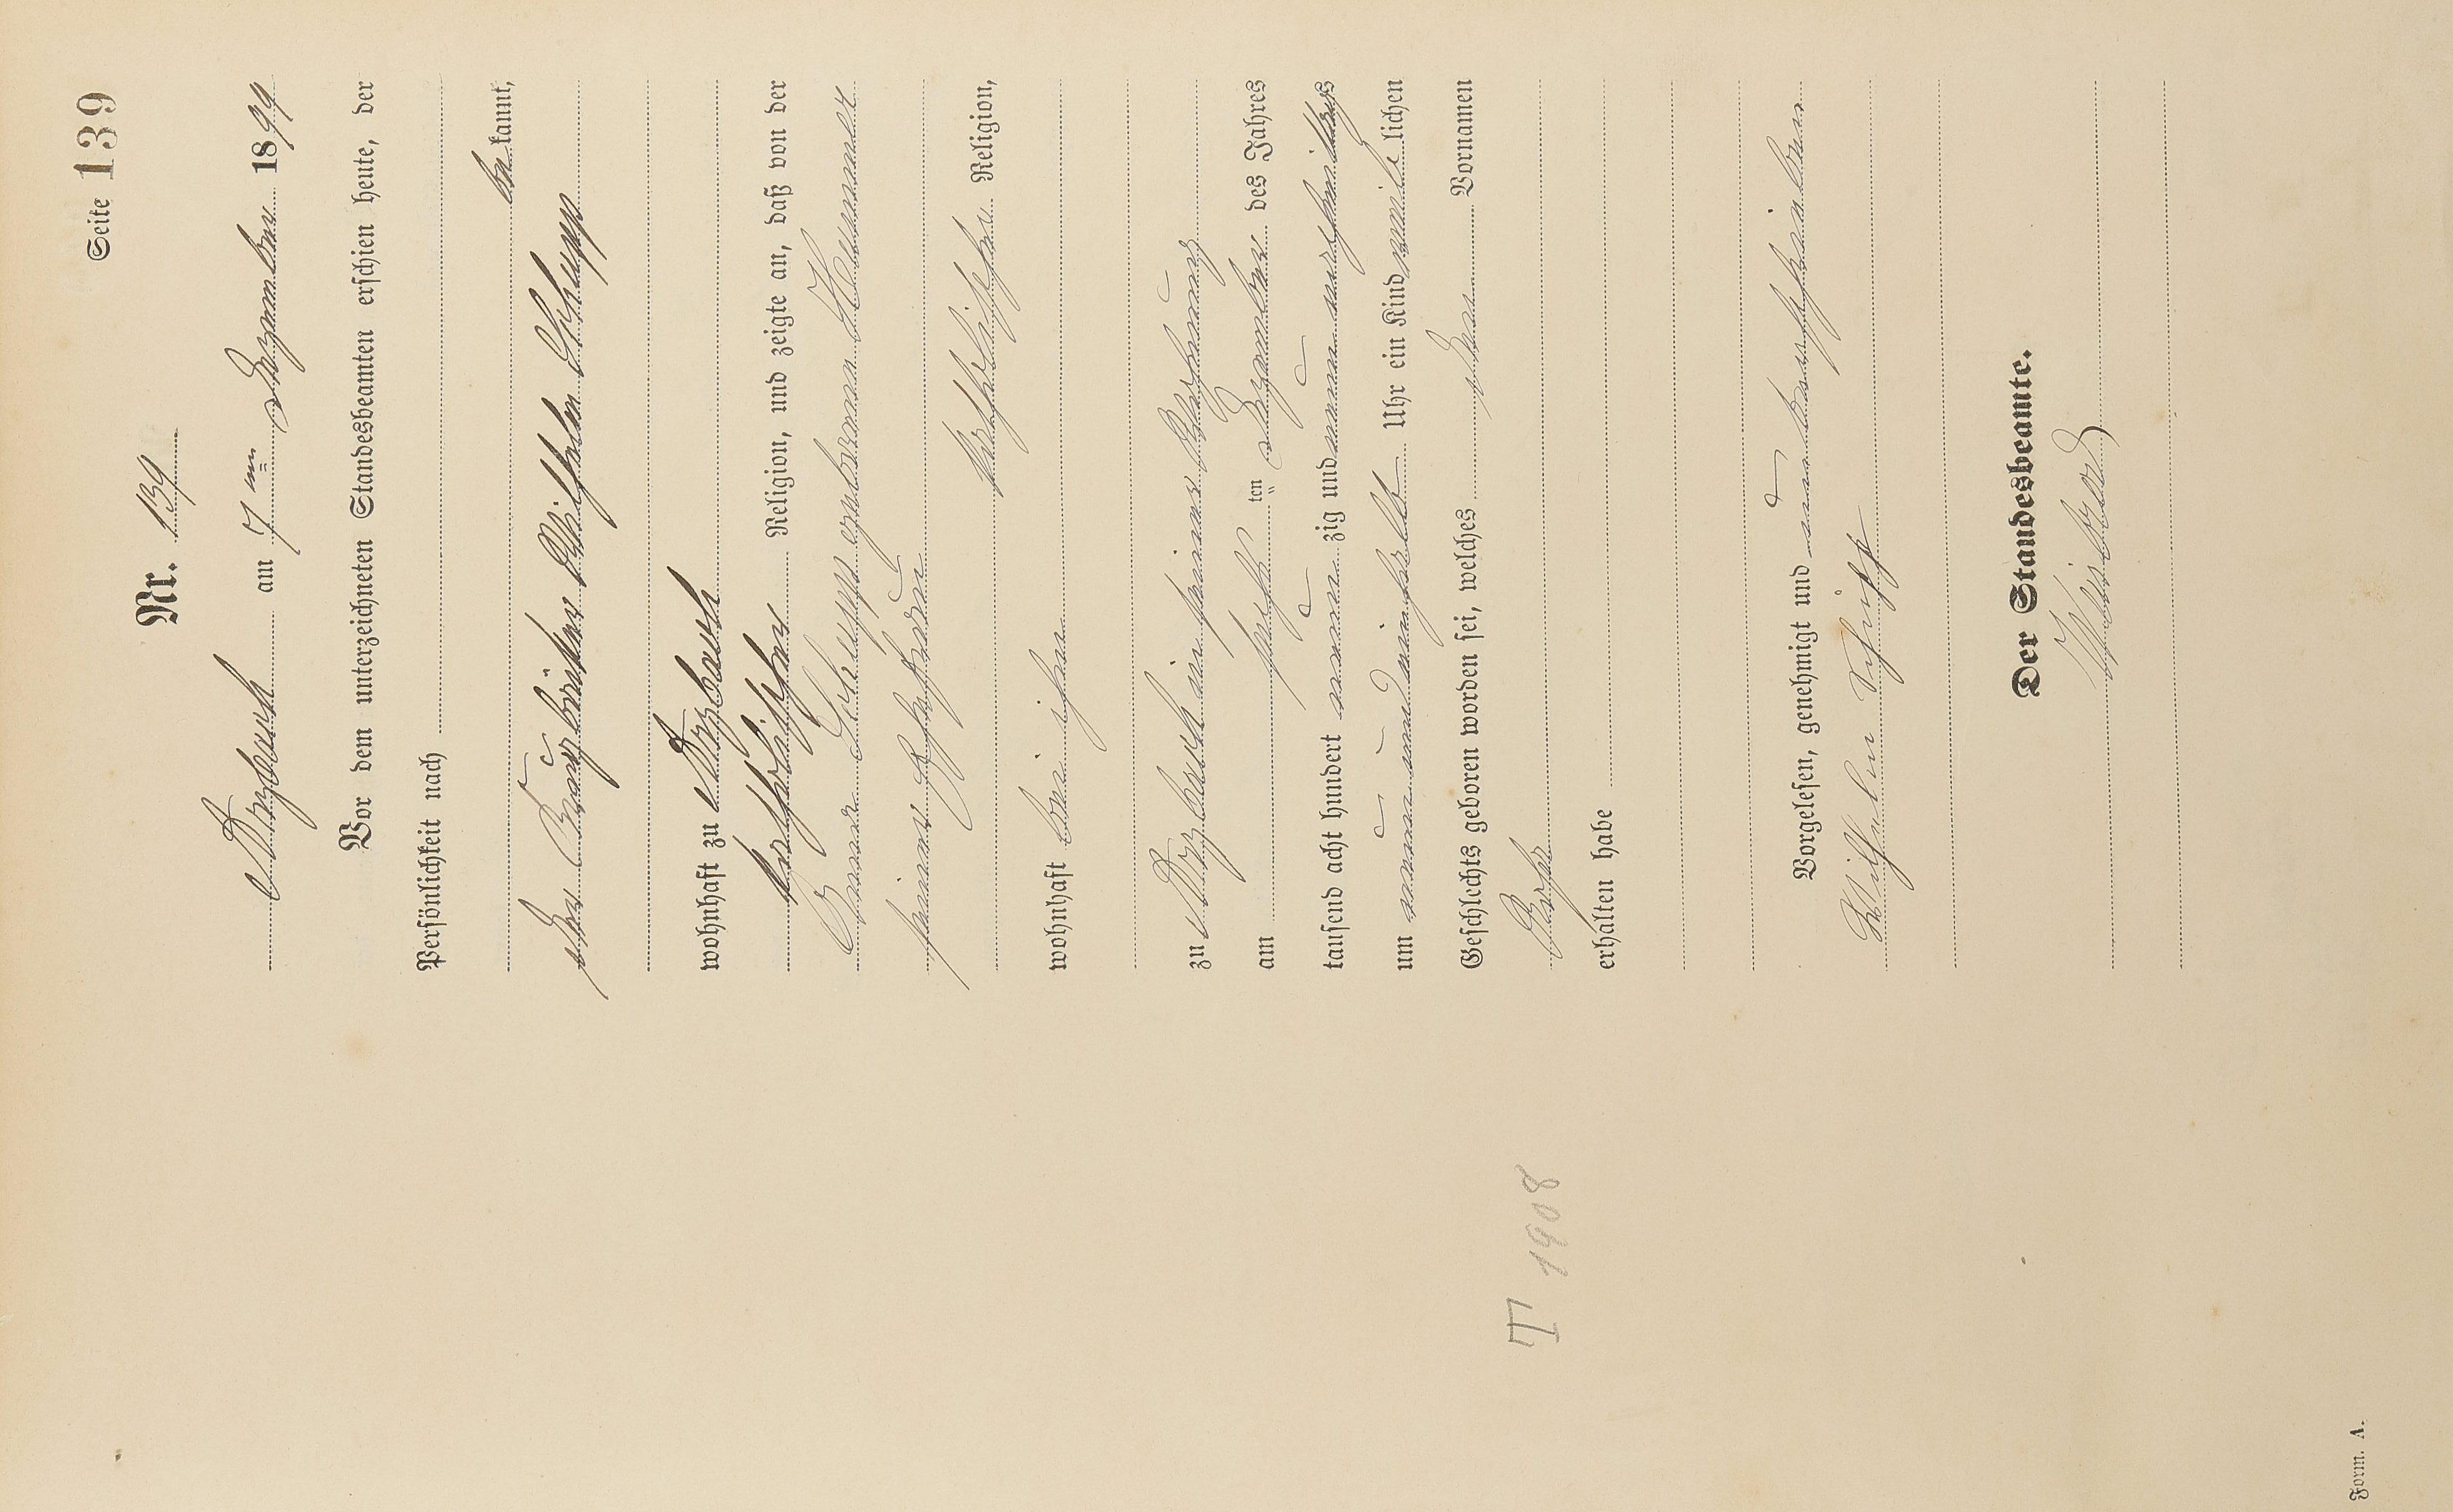 Seite 139
Nr. 139
am 7ten Dezember 1899
Vor dem unterzeichneten Standesbeamten erschien heute, der
Persönlichkeit nach
bekannt,
der Wilhelm Schupp
wohnhaft zu
katholischer Religion, und zeigte an, daß von der
Anna Schupp geborenen Hummer
seiner Ehefrau
katholischer Religion,
wohnhaft bei ihm
zu in seiner Wohnung
am sechsten Dezember des Jahres
tausend acht hundert neunzig und neun nachmittags
um neun und einhalb Uhr ein Kind weiblichen
Geschlechts geboren worden sei, welches den Vornamen
erhalten habe
T 1908
Vorgelesen, genehmigt und unterschrieben
Wilhelm Schupp
Der Standesbeamte.
Form. A.